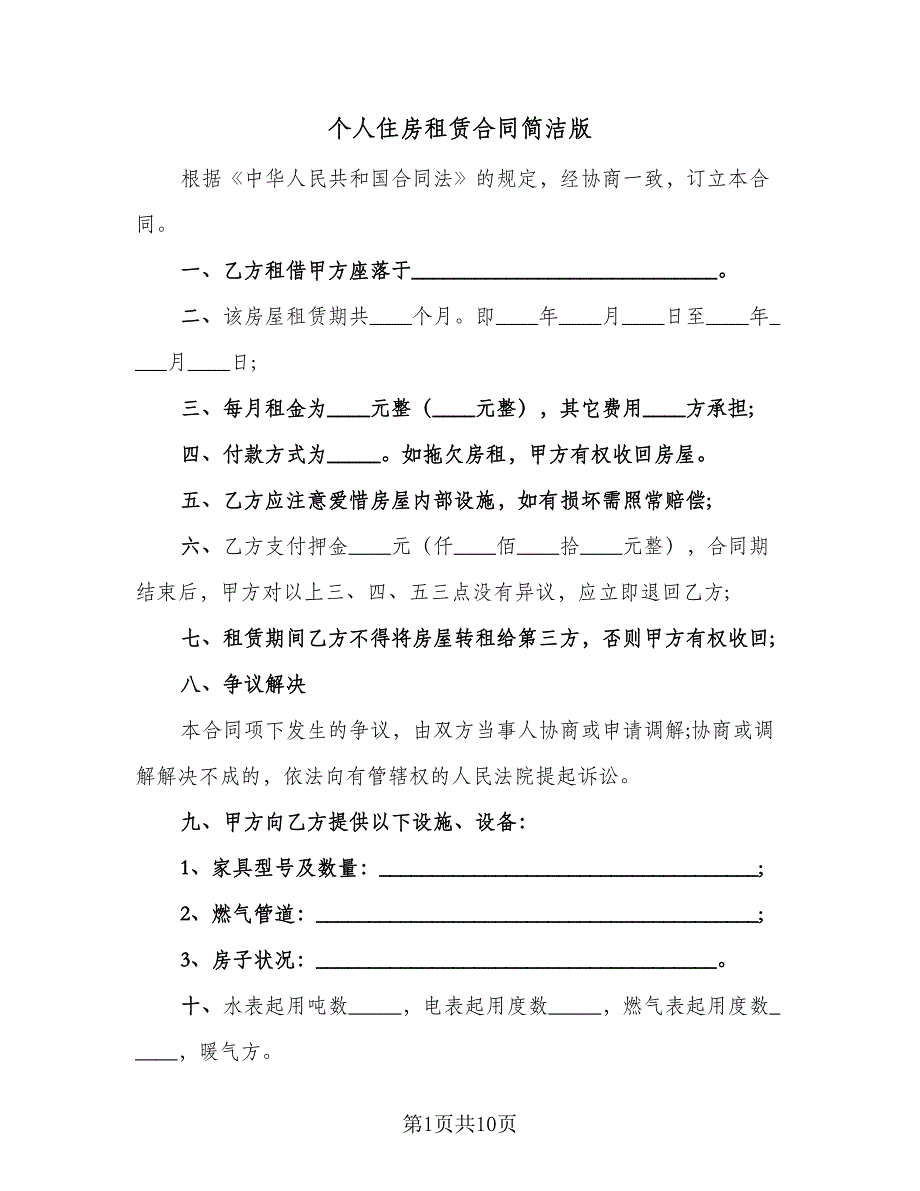 个人住房租赁合同简洁版
根据《中华人民共和国合同法》的规定，经协商一致，订立本合
同。
一、乙方租借甲方座落于_____________________________。
二、该房屋租赁期共____个月。即____年____月____日至____年_
___月____日;
三、每月租金为____元整（____元整），其它费用____方承担;
四、付款方式为_____。如拖欠房租，甲方有权收回房屋。
五、乙方应注意爱惜房屋内部设施，如有损坏需照常赔偿;
六、乙方支付押金____元（仟____佰____拾____元整），合同期
结束后，甲方对以上三、四、五三点没有异议，应立即退回乙方;
七、租赁期间乙方不得将房屋转租给第三方，否则甲方有权收回;
八、争议解决
本合同项下发生的争议，由双方当事人协商或申请调解;协商或调
解解决不成的，依法向有管辖权的人民法院提起诉讼。
九、甲方向乙方提供以下设施、设备：
1、家具型号及数量：____________________________________;
2、燃气管道：__________________________________________;
3、房子状况：______________________________________。
十、水表起用吨数_____，电表起用度数_____，燃气表起用度数_
____，暖气方。
第1页共10页